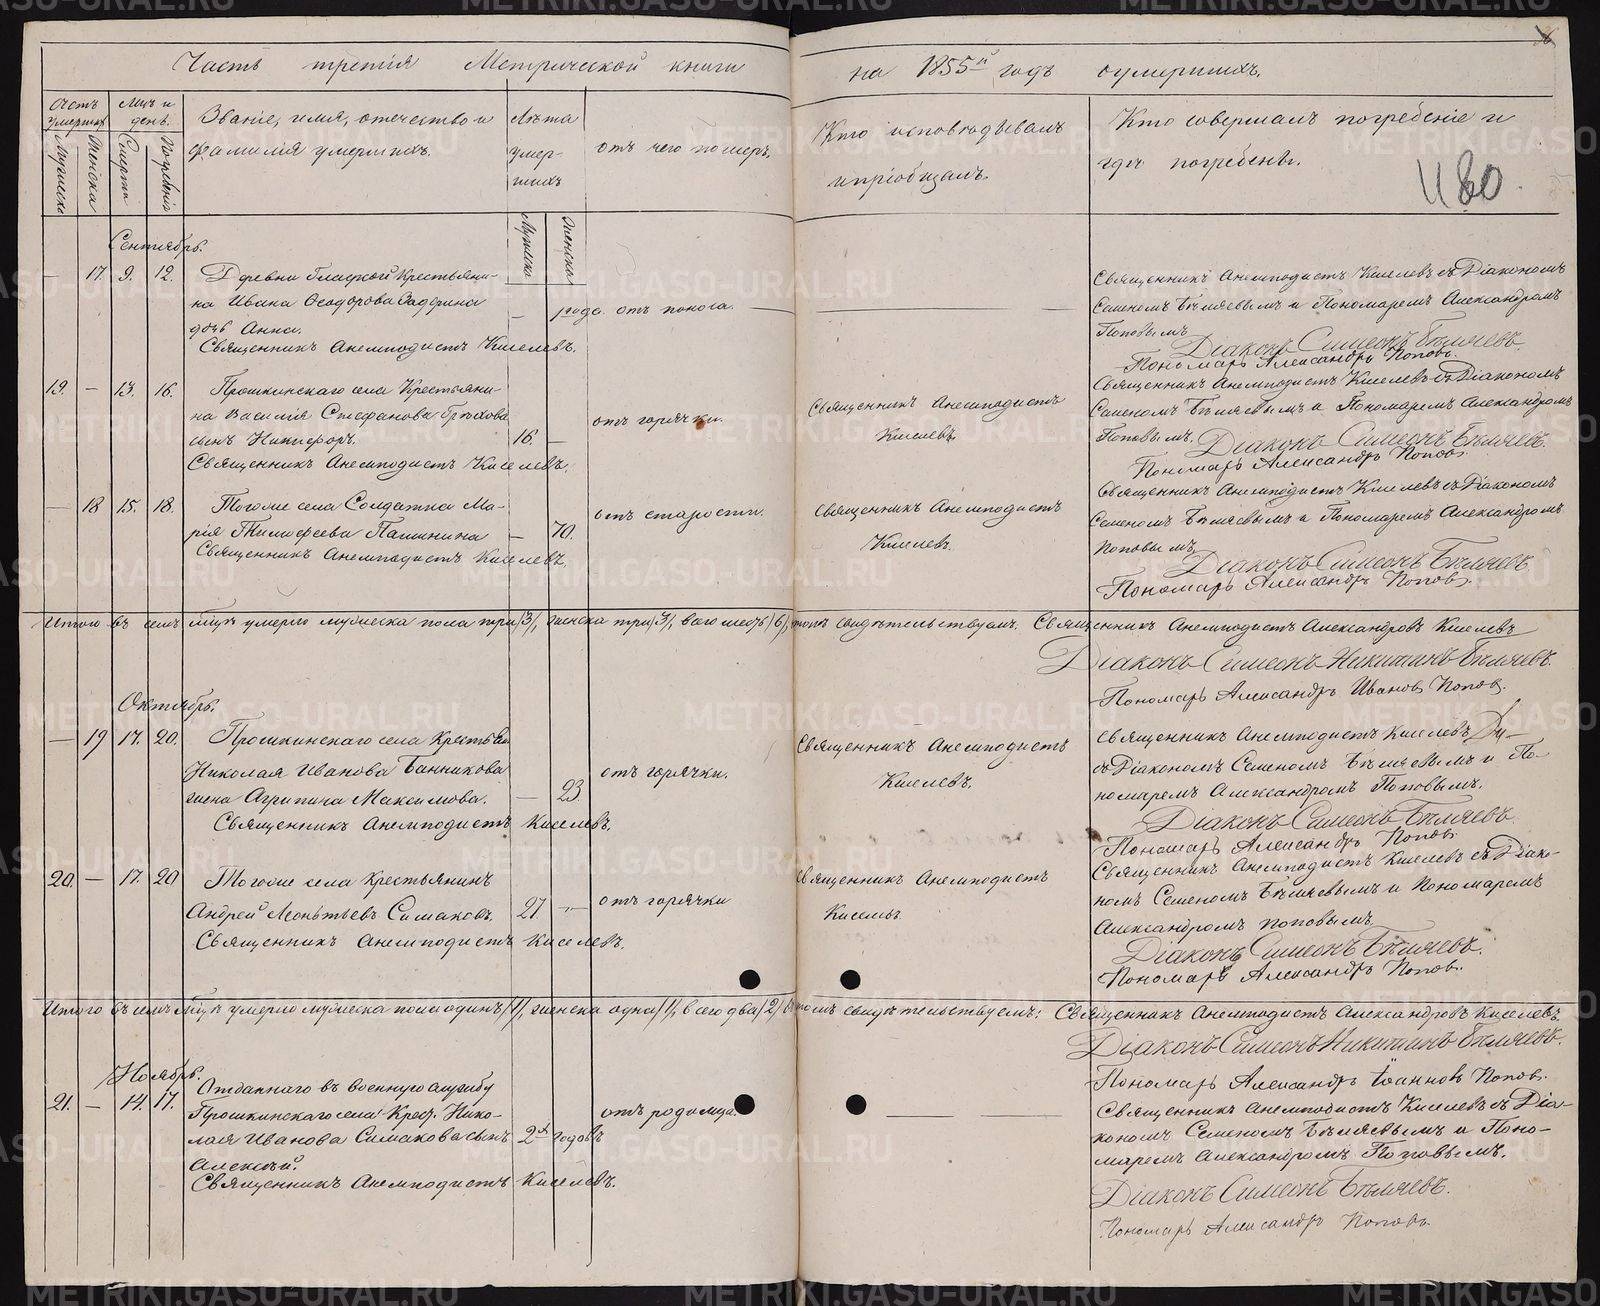 Часть третія Метрической книги на 1855й годъ оумершихъ.
Счетъ умершихъ
Мужеска
Женска
Мѣс. и день.
Смерти
Погребенія
Званіе, имя, отечество и
фамилія умершихъ.
Лѣта
умер-
шихъ
Мужеска
Женска
отъ чего померъ.
Кто исповѣдывалъ
и пріобщалъ.
Кто совершалъ погребеніе и
гдѣ погребены.
480.
Сентябрь.
— 17. 9. 12.
Деревни Крестьяни-
на Ивана Ѳеодорова
дочь Анна.
Священникъ Анемподистъ Киселевъ.
— 1 года. отъ поноса.
Священникъ Анемподистъ Киселевъ съ Діакономъ
Семеномъ Бѣляевымъ и Пономаремъ Александромъ
Поповымъ
Діаконъ Симеонъ Бѣляевъ.
Пономарь Александръ Поповъ.
19. — 13. 16.
Прошкинскаго села Крестьяни-
на Василія Стефанова
сынъ Никифоръ.
Священникъ Анемподистъ Киселевъ.
16. —
отъ горячки.
Священникъ Анемподистъ
Киселевъ.
Священникъ Анемподистъ Киселевъ съ Діакономъ
Семеномъ Бѣляевымъ и Пономаремъ Александромъ
Поповымъ.
Діаконъ Симеонъ Бѣляевъ.
Пономарь Александръ Поповъ.
— 18 15. 18.
Тогоже села Солдатка Ма-
рія Тимофеева Пашнина
Священникъ Анемподистъ Киселевъ.
— 70.
отъ старости.
Священникъ Анемподистъ
Киселевъ.
Священникъ Анемподистъ Киселевъ съ Діакономъ
Семеномъ Бѣляевымъ и Пономаремъ Александромъ
Поповымъ.
Діаконъ Симеонъ Бѣляевъ
Пономарь Александръ Поповъ.
Итого въ семъ мѣсяцѣ умерло мужеска пола три /3/, женска три /3/, всего шесть /6/, въ томъ свидѣтельствуемъ. Священникъ Анемподистъ Александровъ Киселевъ
Діаконъ Симеонъ Никитинъ Бѣляевъ.
Пономарь Александръ Ивановъ Поповъ.
Октябрь.
— 19 17. 20.
Прошкинскаго села Крестьян.
Николая Иванова Банникова
жена Агрипина Максимова.
Священникъ Анемподистъ Киселевъ.
— 23
отъ горячки.
Священникъ Анемподистъ
Киселевъ.
Священникъ Анемподистъ Киселевъ
съ Діакономъ Семеномъ Бѣляевымъ и По-
номаремъ Александромъ Поповымъ.
Діаконъ Симеонъ Бѣляевъ.
Пономарь Александръ Поповъ.
20. — 17. 20
Тогоже села Крестьянинъ
Андрей Леонтьевъ Симаковъ
Священникъ Анемподистъ Киселевъ.
27 —
отъ горячки
Священникъ Анемподистъ
Киселевъ
Священникъ Анемподистъ Киселевъ съ Діако-
номъ Семеномъ Бѣляевымъ и Пономаремъ
Александромъ Поповымъ
Діаконъ Симеонъ Бѣляевъ.
Пономарь Александръ Поповъ.
Итого въ семъ мѣсяцѣ умерло мужеска пола одинъ /1/, женска одна /1/, всего два /2/ въ томъ свидѣтельствуемъ: Священникъ Анемподистъ Александровъ Киселевъ
Діаконъ Симеонъ Никитинъ Бѣляевъ.
Пономарь Александръ Іоанновъ Поповъ.
Ноябрь.
21. — 14. 17.
Отданнаго въ военную службу
Прошкинскаго села Крест. Нико-
лая Иванова Симакова сынъ
Алексѣй.
Священникъ Анемподистъ Киселевъ.
2х годовъ
отъ родимца.
Священникъ Анемподистъ Киселевъ съ Діа-
кономъ Семеномъ Бѣляевымъ и Поно-
маремъ Александромъ Поповымъ.
Діаконъ Симеонъ Бѣляевъ.
Пономарь Александръ Поповъ
METRIKI.GASO-URAL.RU